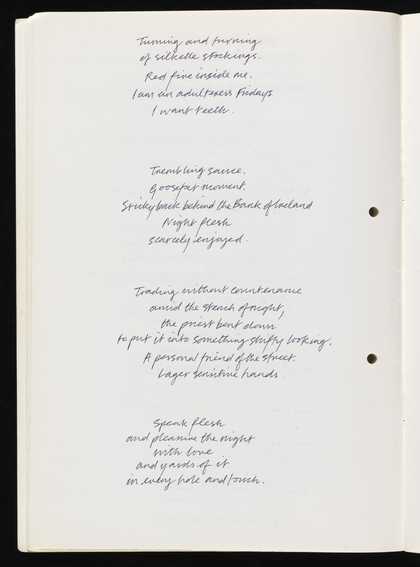 Turning and turning
of silkette stockings.
Red fire inside me.
I am an adulteress Fridays
I want teeth.
Trembling sauce.
Goosefat moment.
Stickyback behind the Bank of Ireland
Night flesh
scarcely enjoyed.
Trading without countenance
amid the stench of night,
the priest bent down
to put it into something stuffy looking.
A personal friend of the street.
Lager sensitive hands
Speak flesh
and pleasure the night
with love
and yards of it
in every hole and touch.